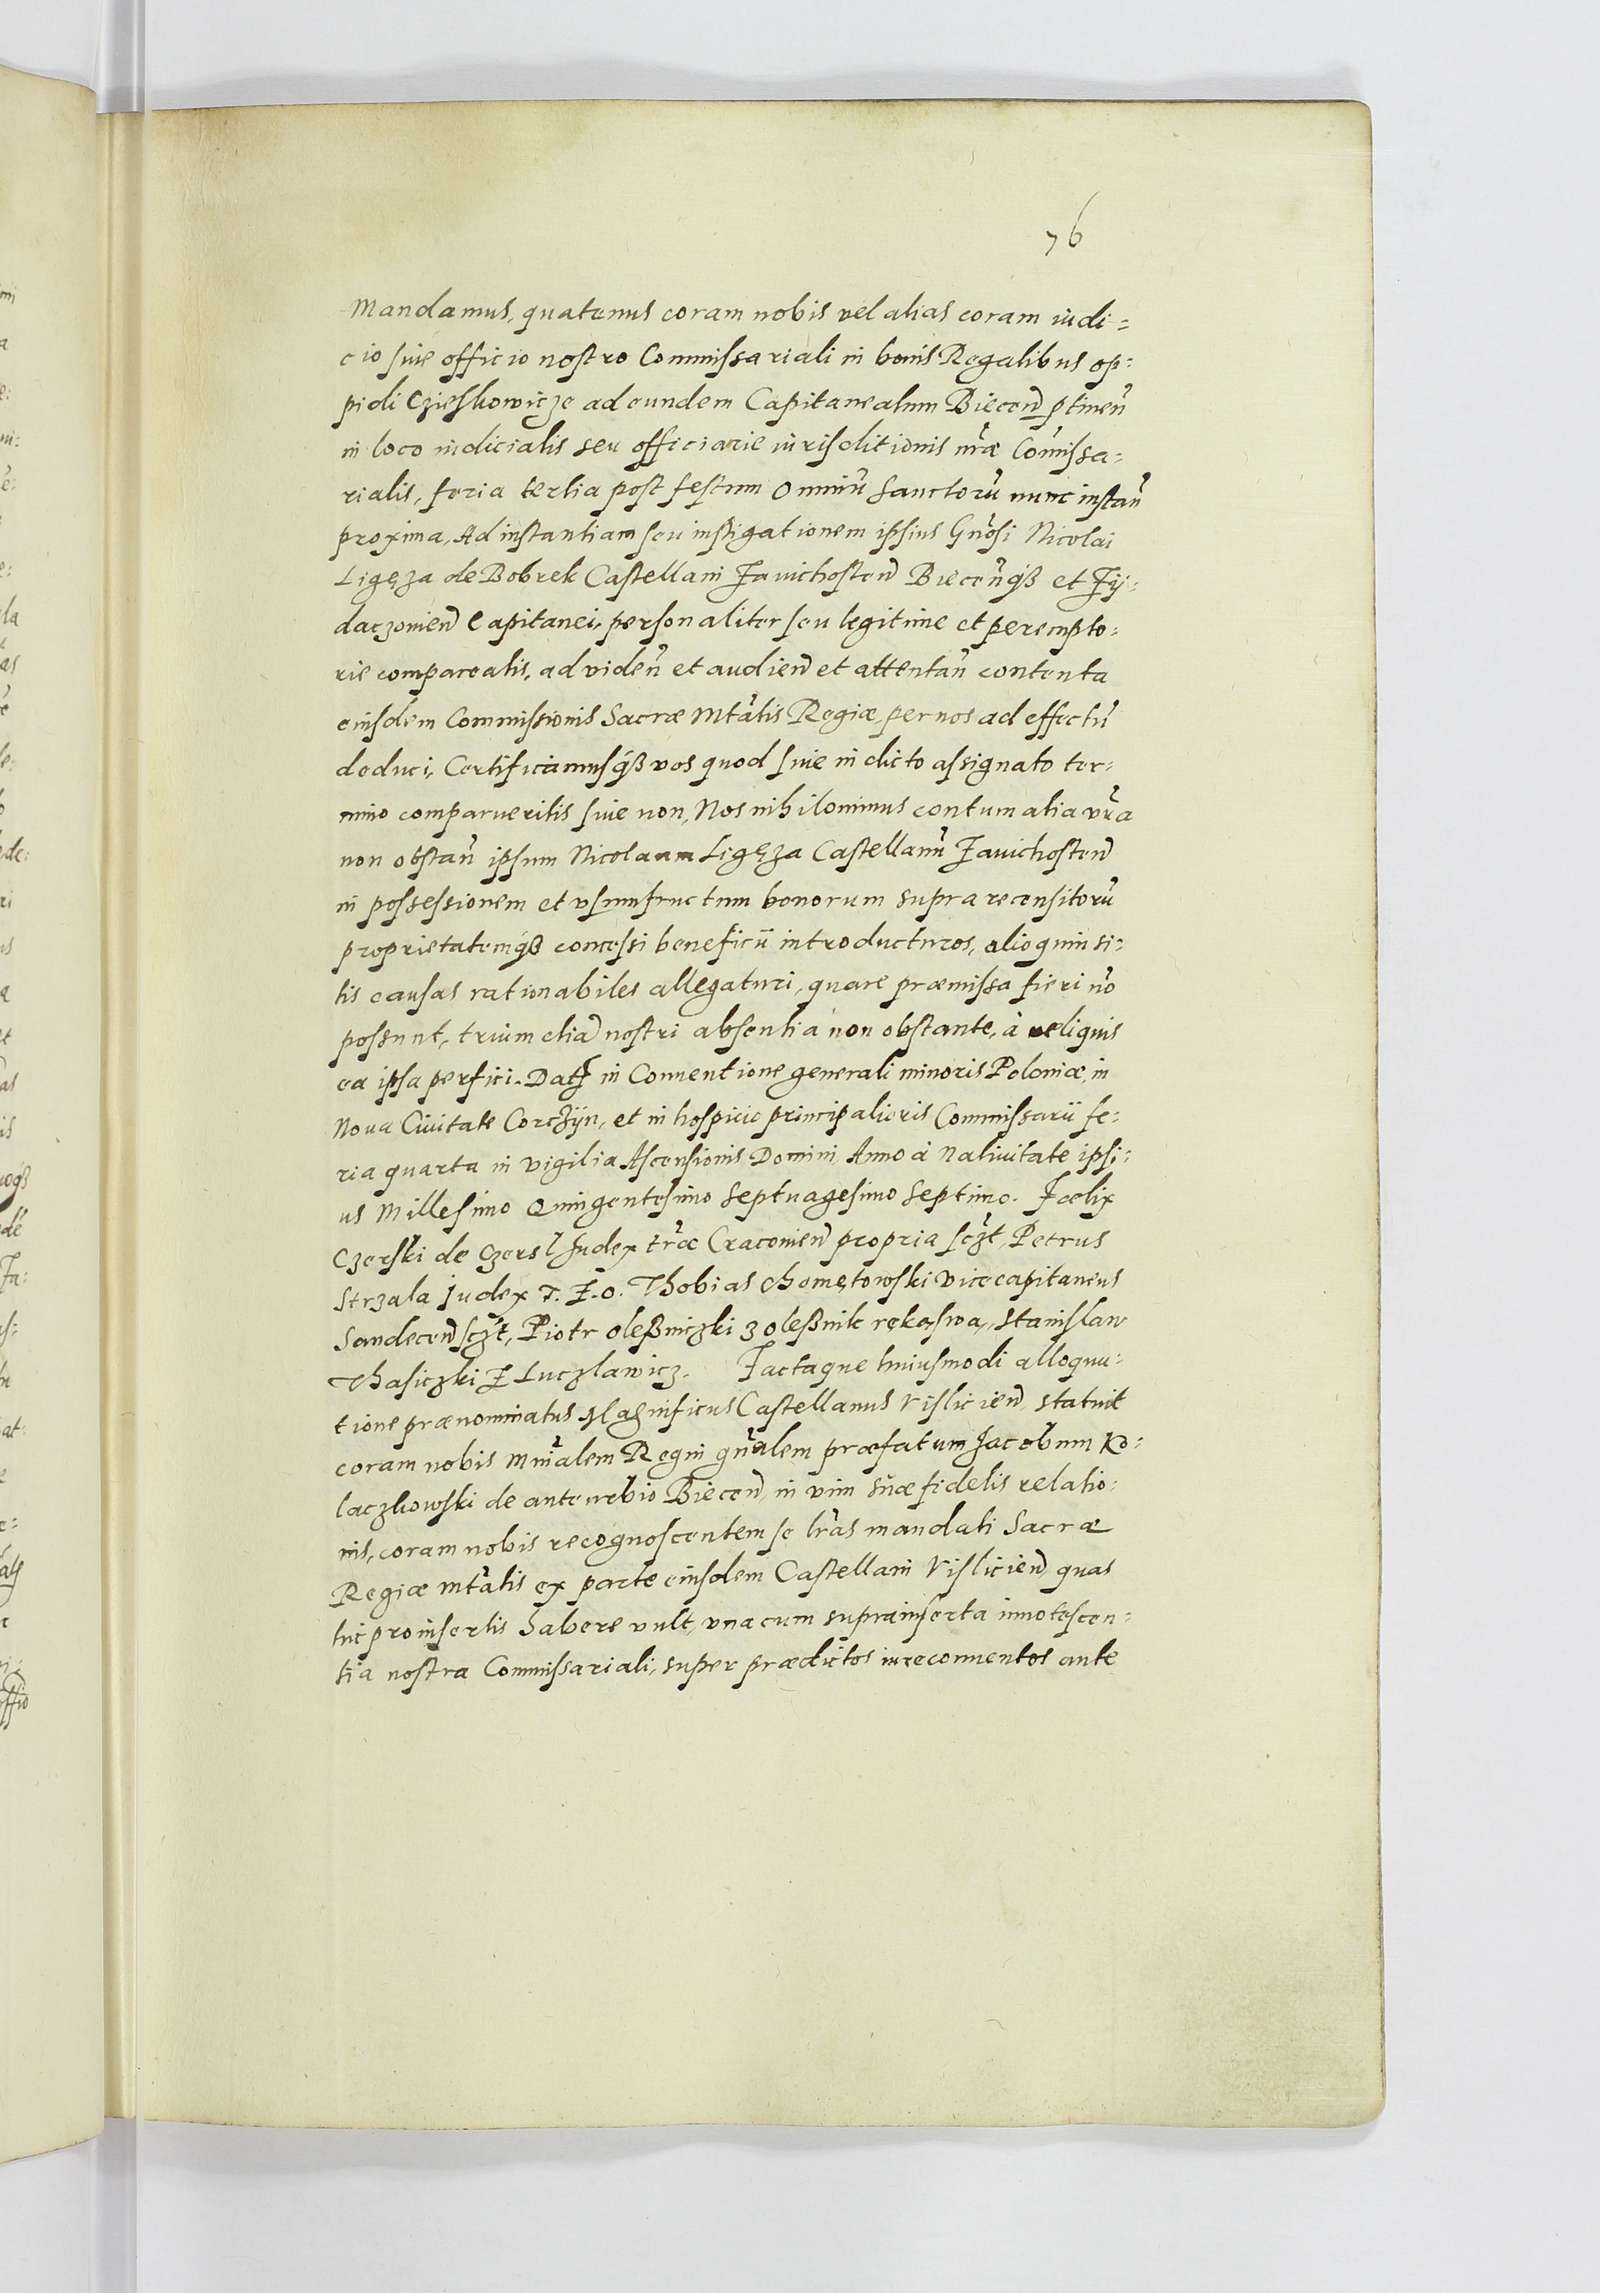 76
Mandamus, quatenus coram nobis vel alias coram iudi=
cio siue officio nostro Commissariali in bonis Regalibus op=
pidi Cziesskowicze ad eundem Capitaneatum Biecen̄ ptinen̄
in loco iudicialis seu officiarie iurisditionis nr̄æ Com̄issa=
rialis, feria tertia post festum Omniū Sanctorū nunc instan̄
proxima, Ad instantiam seu instigationem ipsius Gn̄osi Nicolai
Ligęza de Bobrek Castellani Zawichosten̄ Biecen̄qß et Zÿ=
daczowien̄ Capitanei, personaliter seu legitime et perempto=
rie compareatis, ad viden̄ et audien̄ et attentan̄ contenta
eiusdem Commissionis Sacræ Mtātis Regiæ, per nos ad effectū
deduci, Certificamusqß vos quod siue in dicto assignato ter=
mino comparueritis siue non, Nos nihilominus contumatia vr̄a
non obstan̄ ipsum Nicolaum Ligęza Castellanū Zawichosten̄
in possessionem et vsumfructum bonorum supra recensitorū
proprietatemqß concessi beneficii introducturos, alioquin si=
tis causas rationabiles allegaturi, quare præmissa fieri nō
possunt, trium etiā nostri absentia non obstante, à reliquis
ea ipsa perfici. Datꝭ in Conuentione generali minoris Poloniæ, in
Noua Ciuitate Corczÿn, et in hospicio principalioris Commissarii fe=
ria quarta in vigilia Ascensionis Domini Anno à Natiuitate ipsi=
us Millesimo Quingentesimo Septuagesimo Septimo. Fælix
Czerski de Czersl Judex trǣ Cracouien̄ propria sczt̄, Petrus
Strzala Judex T. Z. O. Thobias Chomętowski Vicecapitaneus
Sandecen̄ sczt̄, Piotr Oleßniczki z Oleßnik ręką swą, Stanislaw
Thasiczki Z Luczlawicz. Factaque huiusmodi alloquu=
tione prænominatus Magnificus Castellanus Vislicien̄ statuit
coram nobis Mnr̄alem Regni gn̄alem præfatum Jacobum Ko=
laczkowski de anteurbio Biecen̄, in vim suæ fidelis relatio=
nis, coram nobis recognoscentem se lr̄as mandati Sacræ
Regiæ Mtātis ex parte eiusdem Castellani Vislicien̄ quas
hic pro insertis habere vult, vna cum suprainserta innotescen=
tia nostra Commissariali, super prædictos iure conuentos ante